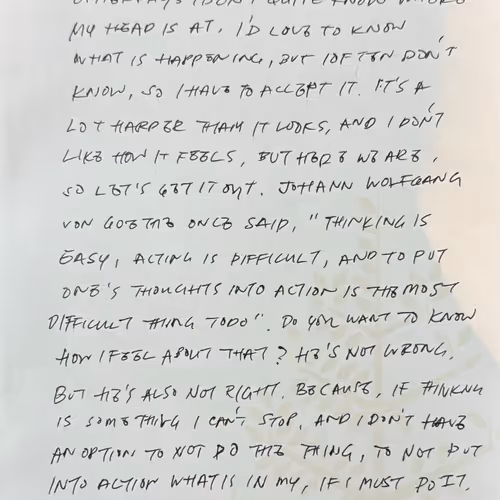 OTHER DAYS I DON'T QUITE KNOW WHERE
MY HEAD IS AT. I'D LOVE TO KNOW
WHAT IS HAPPENING, BUT I OFTEN DON'T
KNOW, SO I HAVE TO ACCEPT IT. IT'S A
LOT HARDER THAN IT LOOKS, AND I DON'T
LIKE HOW IT FEELS, BUT HERE WE ARE,
SO LET'S GET IT OUT. JOHANN WOLFGANG
VON GOETHE ONCE SAID, "THINKING IS
EASY, ACTING IS DIFFICULT, AND TO PUT
ONE'S THOUGHTS INTO ACTION IS THE MOST
DIFFICULT THING TO DO". DO YOU WANT TO KNOW
HOW I FEEL ABOUT THAT? HE'S NOT WRONG.
BUT HE'S ALSO NOT RIGHT. BECAUSE, IF THINKNG
IS SOMETHING I CAN'T STOP, AND I DON'T HAVE
AN OPTION TO NOT DO THE THING, TO NOT PUT
INTO ACTION WHAT IS IN MY, IF I MUST DO IT,